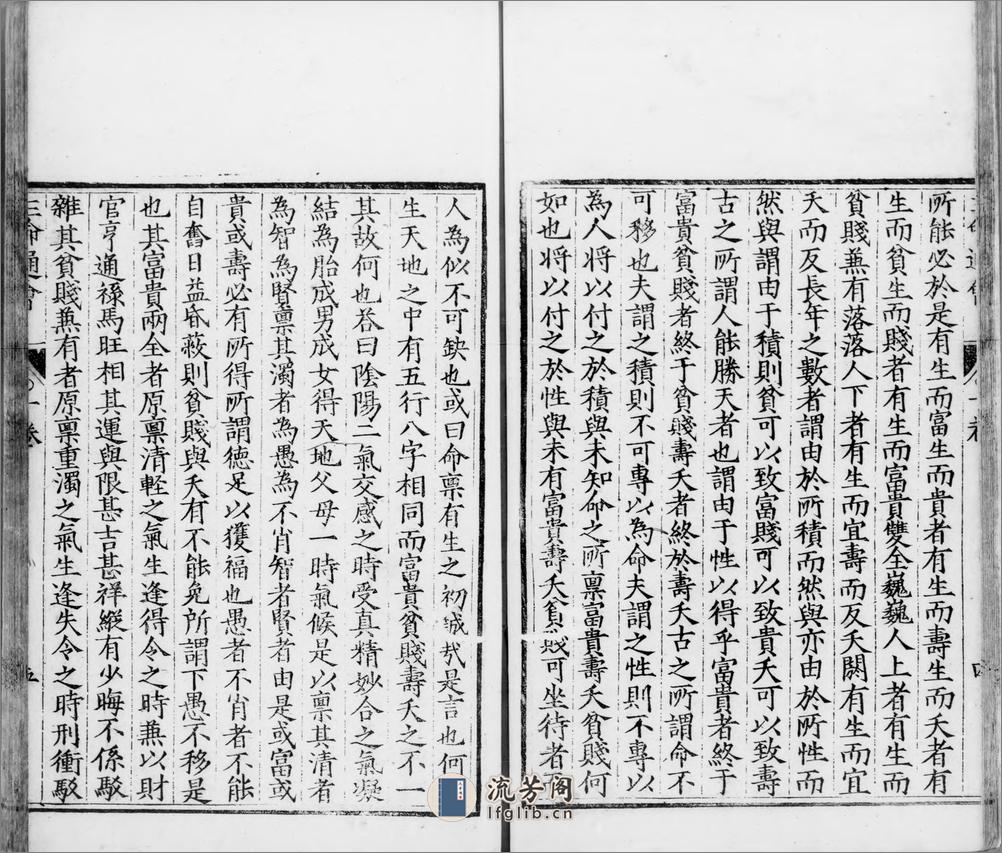 所能必於是有生而富生而貴者有生而壽生而夭者有
生而貧生而賤者有生而富貴雙全巍巍人上者有生而
貧賤蕪有落落人下者有生而宜壽而反夭閼有生而宜
夭而反長年之數者謂由於所積而然與亦由於所性而
然與謂由于積則貧可以致富賤可以致貴夭可以致壽
古之所謂人能勝天者也謂由于性以得乎富貴者終于
富貴貧賤者終于貧賤壽夭者終於壽夭古之所謂命不
可移也夫謂之積則不可專以為命夫謂之性則不專以
為人將以付之於積與未知命之所禀富貴壽夭貧賤何
如也將以付之於性與未有富貴壽夭貧賤可坐待者而
人為似不可缺也或曰命禀有生之初誠哉是言也何
生天地之中有五行八字相同而富貴貧賤壽夭之不一
其故何也荅曰陰陽二氣交感之時受真精妙合之氣凝
結為胎成男成女得天地父母一時氣候是以禀其清者
為智為賢禀其濁者為愚為不肖智者賢者由是或富或
貴或壽必有所得所謂德足以獲福也愚者不肖者不能
自奮日益昏蔽則貧賤與夭有不能免所謂下愚不移是
也其富貴兩全者原禀清輕之氣生逢得令之時蕪以財
官亨通祿馬旺相其運與限甚吉甚祥縱有少晦不係駁
雜其貧賤蕪有者原禀重濁之氣生逢失令之時刑衝駁
三命通會
一卷
五
流芳阁
lfglib.cn